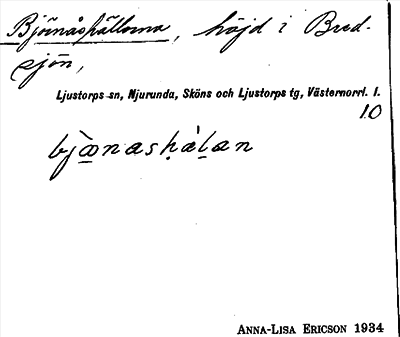 Björnåshällorna, höjd i Bred-
sjön,
Ljustorps sn, Njurunda, Sköns och Ljustorps tg, Västernorrl. l.
10
ANNA-LISA ERICSON 1934